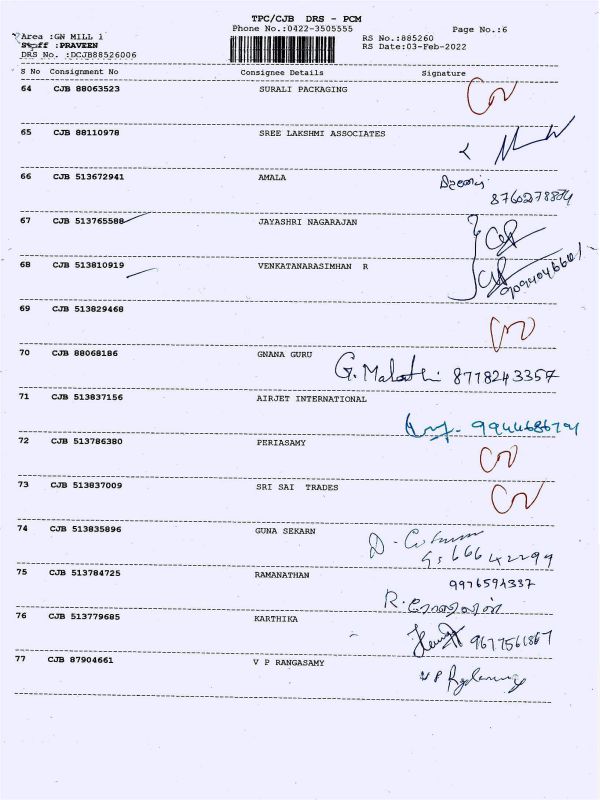 TPC/CJB DRS - PCM
Phone No.:0422-3505555 Page No.:6
Area :GN MILL 1 RS No.:885260
Staff :PRAVEEN RS Date:03-Feb-2022
DRS No. :DCJB88526006
S No Consignment No Consignee Details Signature
64 CJB 88063523 SURALI PACKAGING
65 CJB 88110978 SREE LAKSHMI ASSOCIATES
66 CJB 513672941 AMALA
67 CJB 513765588 JAYASHRI NAGARAJAN
68 CJB 513810919 VENKATANARASIMHAN R
69 CJB 513829468
70 CJB 88068186 GNANA GURU G. Malathi 8778243357
71 CJB 513837156 AIRJET INTERNATIONAL
72 CJB 513786380 PERIASAMY
73 CJB 513837009 SRI SAI TRADES
74 CJB 513835896 GUNA SEKARN
75 CJB 513784725 RAMANATHAN
9976591337
76 CJB 513779685 KARTHIKA 9677561867
77 CJB 87904661 V P RANGASAMY